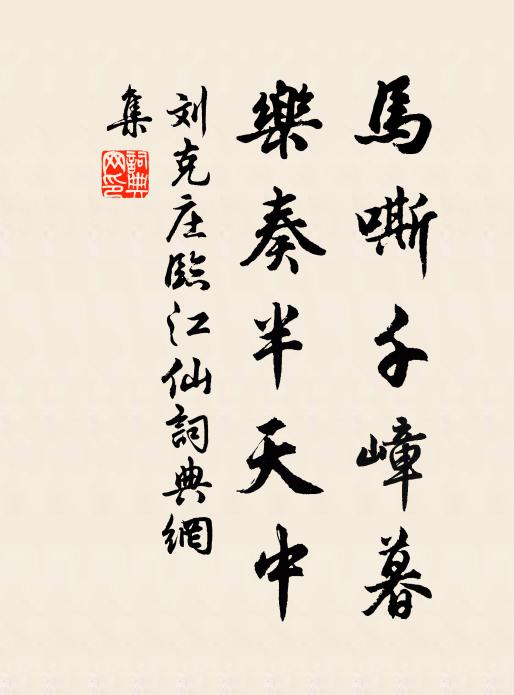 馬嘶千嶂暮
樂奏半天中
刘克庄臨江仙詞典網
集
詞典網印